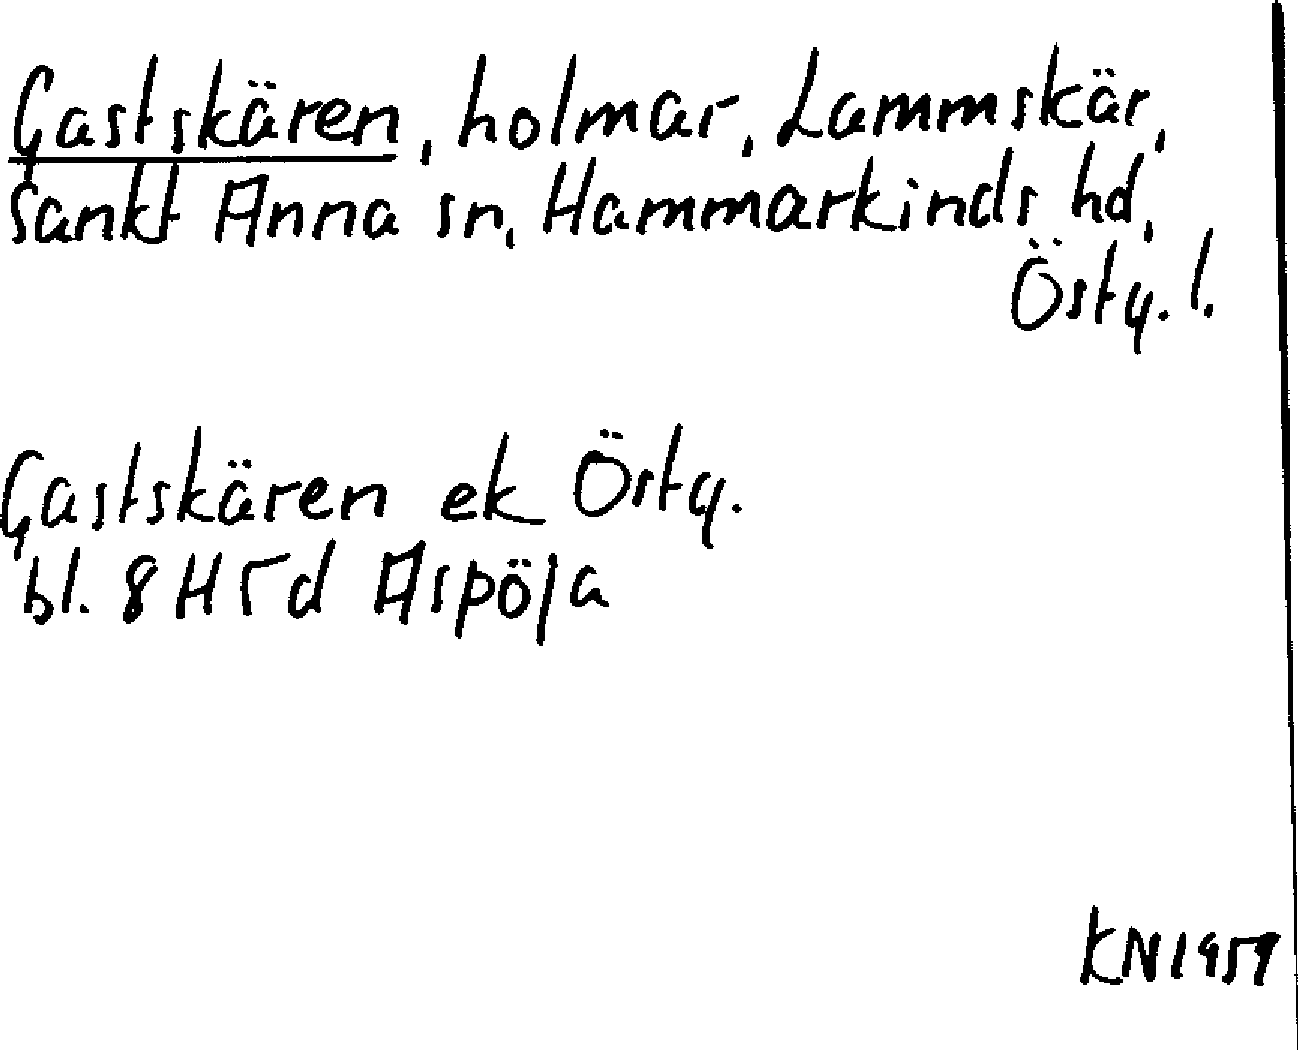 Gastskären, holmar, Lammskär,
Sankt Anna sn, Hammarkinds hd,
Östg. l.
Gastskären ek Östg.
bl. 8H5d Aspöja
KN1959